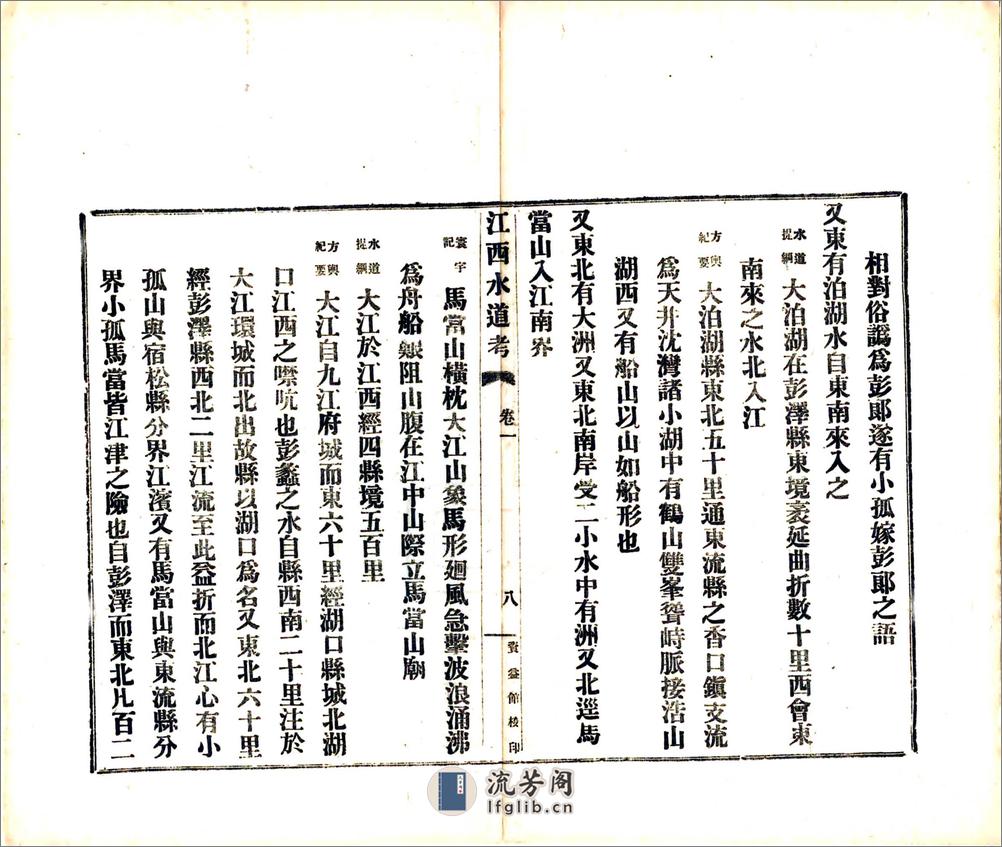 相對俗譌爲彭郞遂有小孤嫁彭郞之語
又東有泊湖水自東南來入之
水道提綱 大泊湖在彭澤縣東境袤延曲折數十里西會東
南來之水北入江
方輿紀要 大泊湖縣東北五十里通東流縣之香口鎭支流
爲天井沈灣諸小湖中有鶴山雙峯聳峙脈接浩山
湖西又有船山以山如船形也
又東北有大洲又東北南岸受二小水中有洲又北逕馬
當山入江南界
江西水道考 卷一 八 資益館校印
寰宇記 馬當山橫枕大江山象馬形廻風急擊波浪涌沸
爲舟船艱阻山腹在江中山際立馬當山廟
水道提綱 大江於江西經四縣境五百里
方輿紀要 大江自九江府城而東六十里經湖口縣城北湖
口江西之噤吭也彭蠡之水自縣西南二十里注於
大江環城而北出故縣以湖口爲名又東北六十里
經彭澤縣西北二里江流至此益折而北江心有小
孤山與宿松縣分界江濱又有馬當山與東流縣分
界小孤馬當皆江津之險也自彭澤而東北凡百二
流芳阁
lfglib.cn